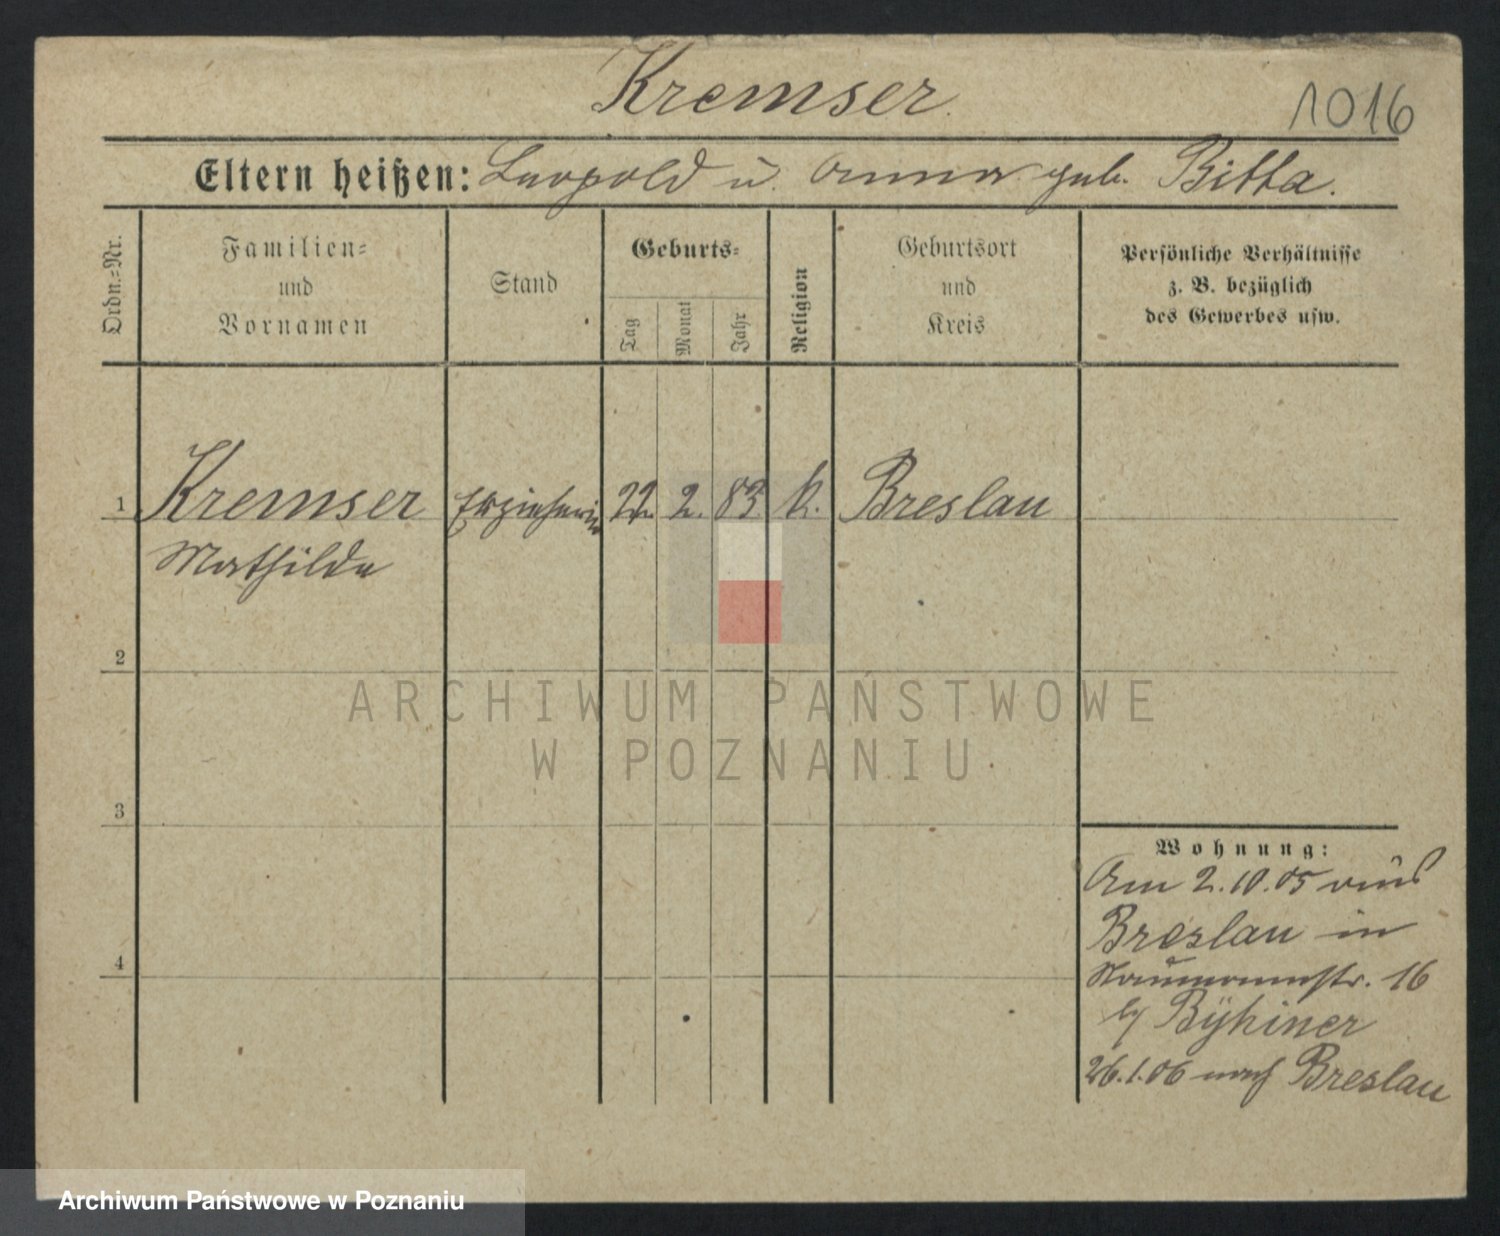 Kremser.
1016
Eltern heißen: Leopold u. Anna geb. Bitta.
Ordn.=Nr.
Familien=
und
Vornamen
Stand
Geburts=
Tag
Monat
Jahr
Religion
Geburtsort
und
Kreis
Persönliche Verhältnisse
z. B. bezüglich
des Gewerbes usw.
1 Kremser Erzieherin 22. 2. 83 k. Breslau
Mathilde
2
3
4
Wohnung:
Am 2.10.05 aus
Breslau in
Naumannstr. 16
by
26.1.06 nach Breslau
ARCHIWUM PAŃSTWOWE
W POZNANIU
Archiwum Państwowe w Poznaniu